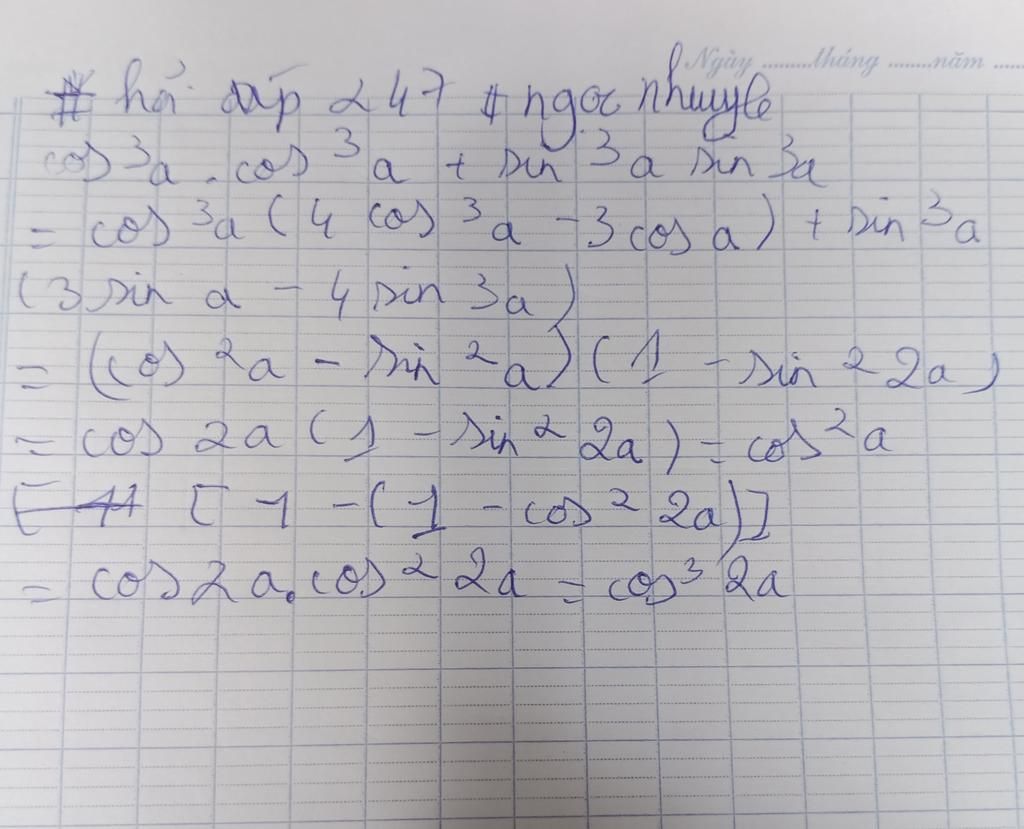 Ngày .........tháng ........năm ......
# hỏi đáp 247 # ngoc nhuyle
cos ³a . cos ³a + sin ³a sin 3a
= cos ³a (4 cos ³a - 3 cos a) + sin ³a
(3 sin a - 4 sin 3a)
= (cos ²a - sin ²a) (1 - sin ² 2a)
= cos 2a (1 - sin² 2a) = cos ²a
[ 1 - (1 - cos² 2a)]
= cos 2a . cos² 2a = cos³ 2a